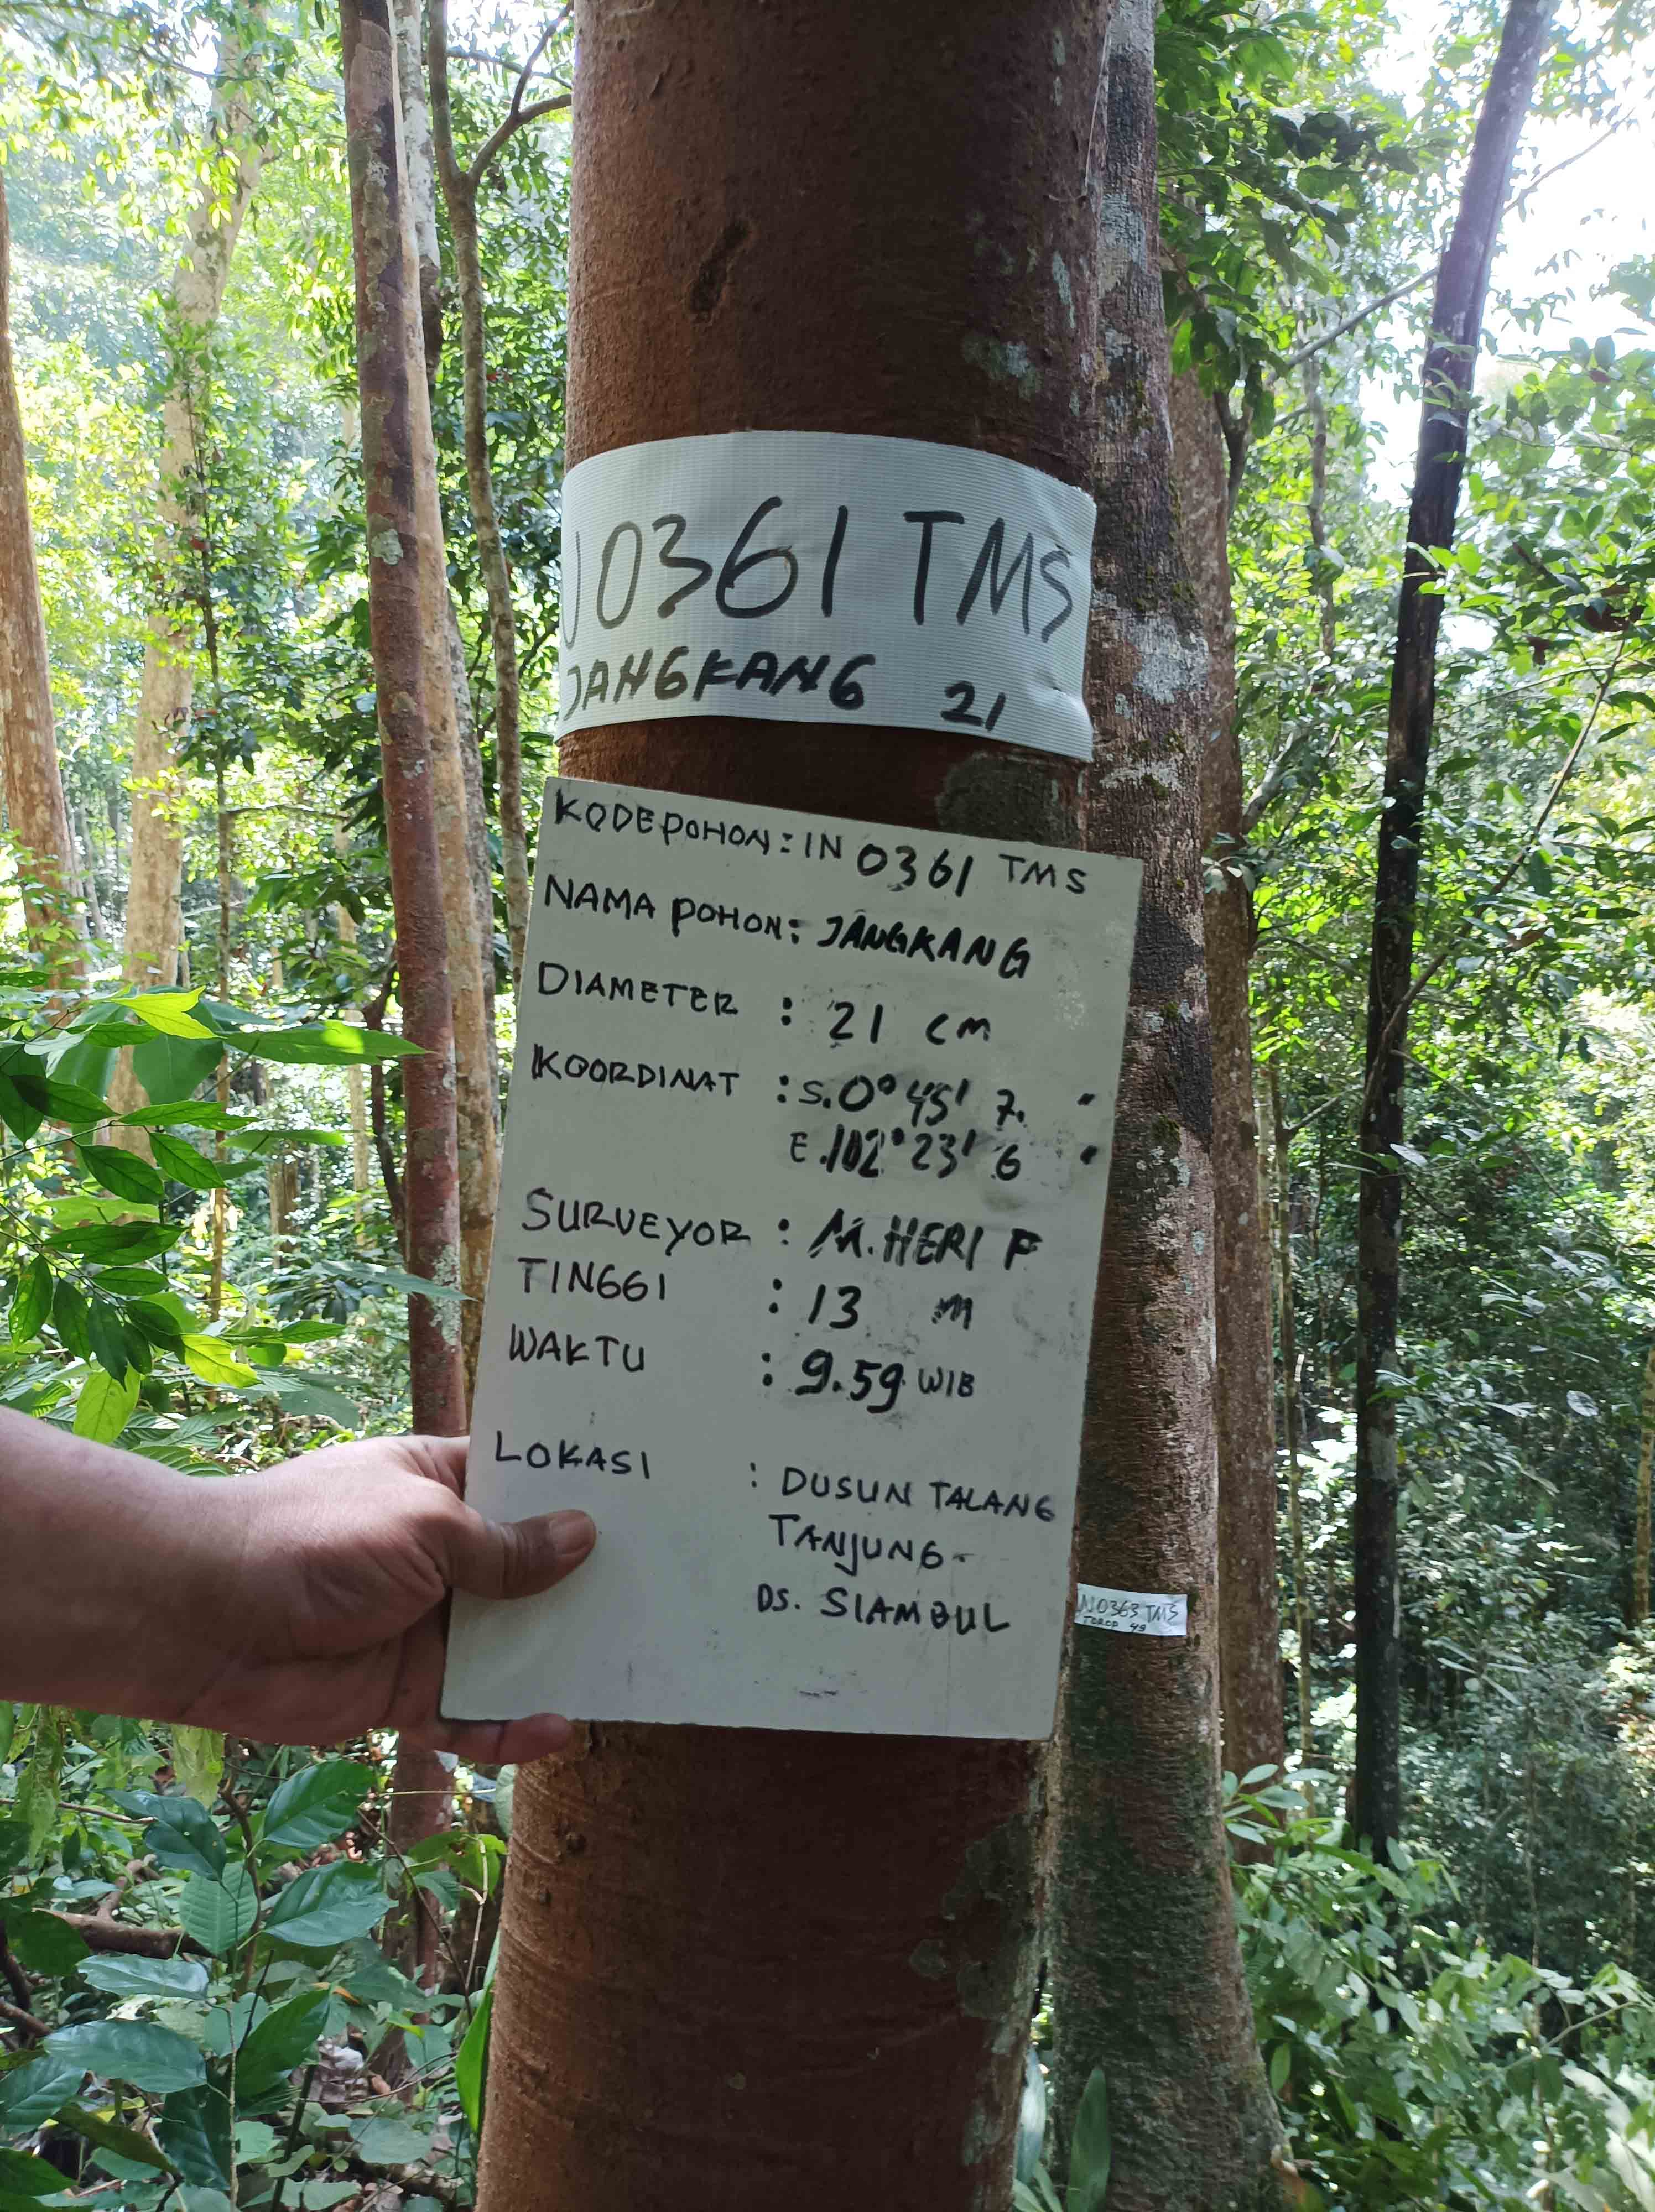 N0361 TMS
JANGKANG 21
KODE POHON : IN 0361 TMS
NAMA POHON : JANGKANG
DIAMETER : 21 CM
KOORDINAT : S. 0° 45' 7. "
E. 102° 23' 6 "
SURVEYOR : M. HERI F
TINGGI : 13 m
WAKTU : 9.59 WIB
LOKASI : DUSUN TALANG
TANJUNG-
DS. SIAMBUL
N0363 TMS
TOROP 49